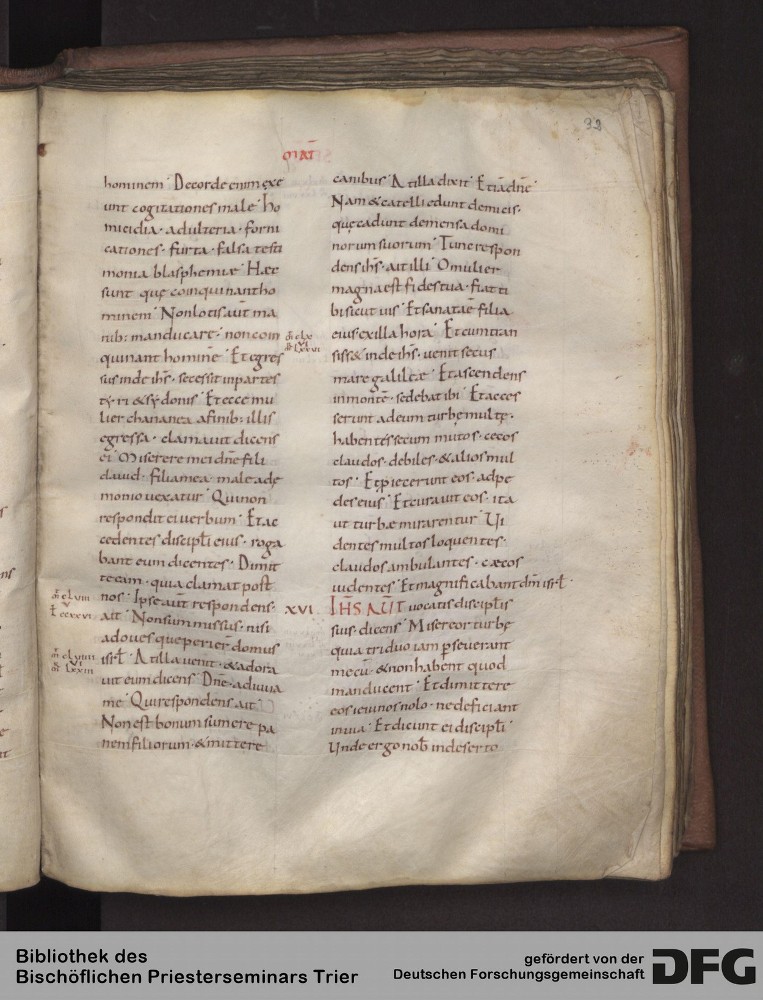 32
MAT̄
hominem· Decorde enim exe
unt cogitationes male· ho
micidia· adulteria· forni
cationes· furta· falsa testi
monia blasphemiæ· Hæc
sunt quę coinquinant ho
minem· Nonlotis aut̄ ma
nib: manducare· non coin
quinant homine· Et egres
sus inde ihs̄· secessit in partes
ty·ri & sy·donis· Et ecce mu
lier chananea a finib: illis
egressa· clamauit dicens
ei· Miserere mei dn̄e fili
dauid· filia mea male a dę
monio uexatur· Qui non
respondit ei uerbum· Et ac
cedentes discipl̄i eius· roga
bant eum dicentes· Dimit
te eam· quia clamat post
nos· Ipse aut̄ respondens·
ait· Non sum missus· nisi
ad oues que perier̄ domus
isrł· At illa uenit· & adora
uit eum dicens· Dn̄e· adiuua
me· Qui respondens ait
Non est bonum sumere pa
nem filiorum· & mittere
m̄ clx
vi
m̄ Lxxvi
m̄ cLviii
v
ł ccxxvi
m̄ cLviiii
vi
m̄ Lxxiii
canibus· At illa dixit· Etiā dn̄e·
Nam & catelli edunt de micis·
quę cadunt de mensa domi
norum suorum· Tunc respon
dens ihs̄· ait illi· O mulier
magna est fides tua· fiat ti
bi sicut uis· Et sanata ē filia
eius· ex illa hora· Et cum tran
siss& inde ihs̄· uenit secus
mare galileæ· Et ascendens
in monte· sedebat ibi· Et acces
serunt ad eum turbę multę·
habentes secum mutos· cecos
claudos· debiles· & alios mul
tos· Et p̱iecerunt eos· ad pe
des eius· Et curauit eos· ita
ut turbæ mirarentur· Ui
dentes multos loquentes·
claudos ambulantes· cæcos
uidentes· Et magnificabant dm̄ isrł·
XVI IHS̄ AUT̄ uocatis discipl̄is
suis· dicens· Misereor turbę
quia triduo iam p̱seuerant
mecū· & non habent quod
manducent· Et dimittere
eos ieiunos nolo· ne deficiant
in uia· Et dicunt ei discipl̄i·
Unde ergo nob̄ in deserto
Bibliothek des
Bischöflichen Priesterseminars Trier
gefördert von der
Deutschen Forschungsgemeinschaft
DFG